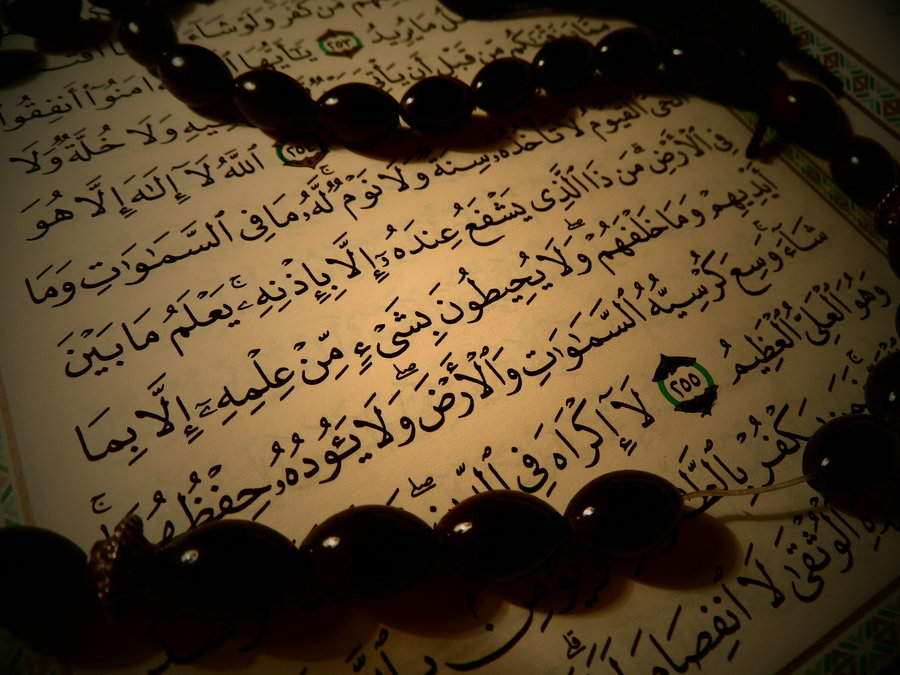 مَّن كَفَرَ وَلَوْ شَآءَ
مَا يُرِيدُ ٢٥٣ يَٰٓأَيُّهَا ءَامَنُوٓا۟ أَنفِقُوا۟
مِّن قَبْلِ أَن يَأْتِىَ وَلَا خُلَّةٌ وَلَا
٢٥٤ ٱللَّهُ لَآ إِلَٰهَ إِلَّا هُوَ
ٱلْحَىُّ ٱلْقَيُّومُ لَا تَأْخُذُهُۥ سِنَةٌ وَلَا نَوْمٌ لَّهُۥ مَا فِى ٱلسَّمَٰوَٰتِ وَمَا
فِى ٱلْأَرْضِ مَن ذَا ٱلَّذِى يَشْفَعُ عِندَهُۥٓ إِلَّا بِإِذْنِهِۦ يَعْلَمُ مَا بَيْنَ
أَيْدِيهِمْ وَمَا خَلْفَهُمْ وَلَا يُحِيطُونَ بِشَىْءٍ مِّنْ عِلْمِهِۦٓ إِلَّا بِمَا
شَآءَ وَسِعَ كُرْسِيُّهُ ٱلسَّمَٰوَٰتِ وَٱلْأَرْضَ وَلَا يَـُٔودُهُۥ حِفْظُهُمَا
وَهُوَ ٱلْعَلِىُّ ٱلْعَظِيمُ ٢٥٥ لَآ إِكْرَاهَ فِى
يَكْفُرْ
ٱلْوُثْقَىٰ لَا ٱنفِصَامَ